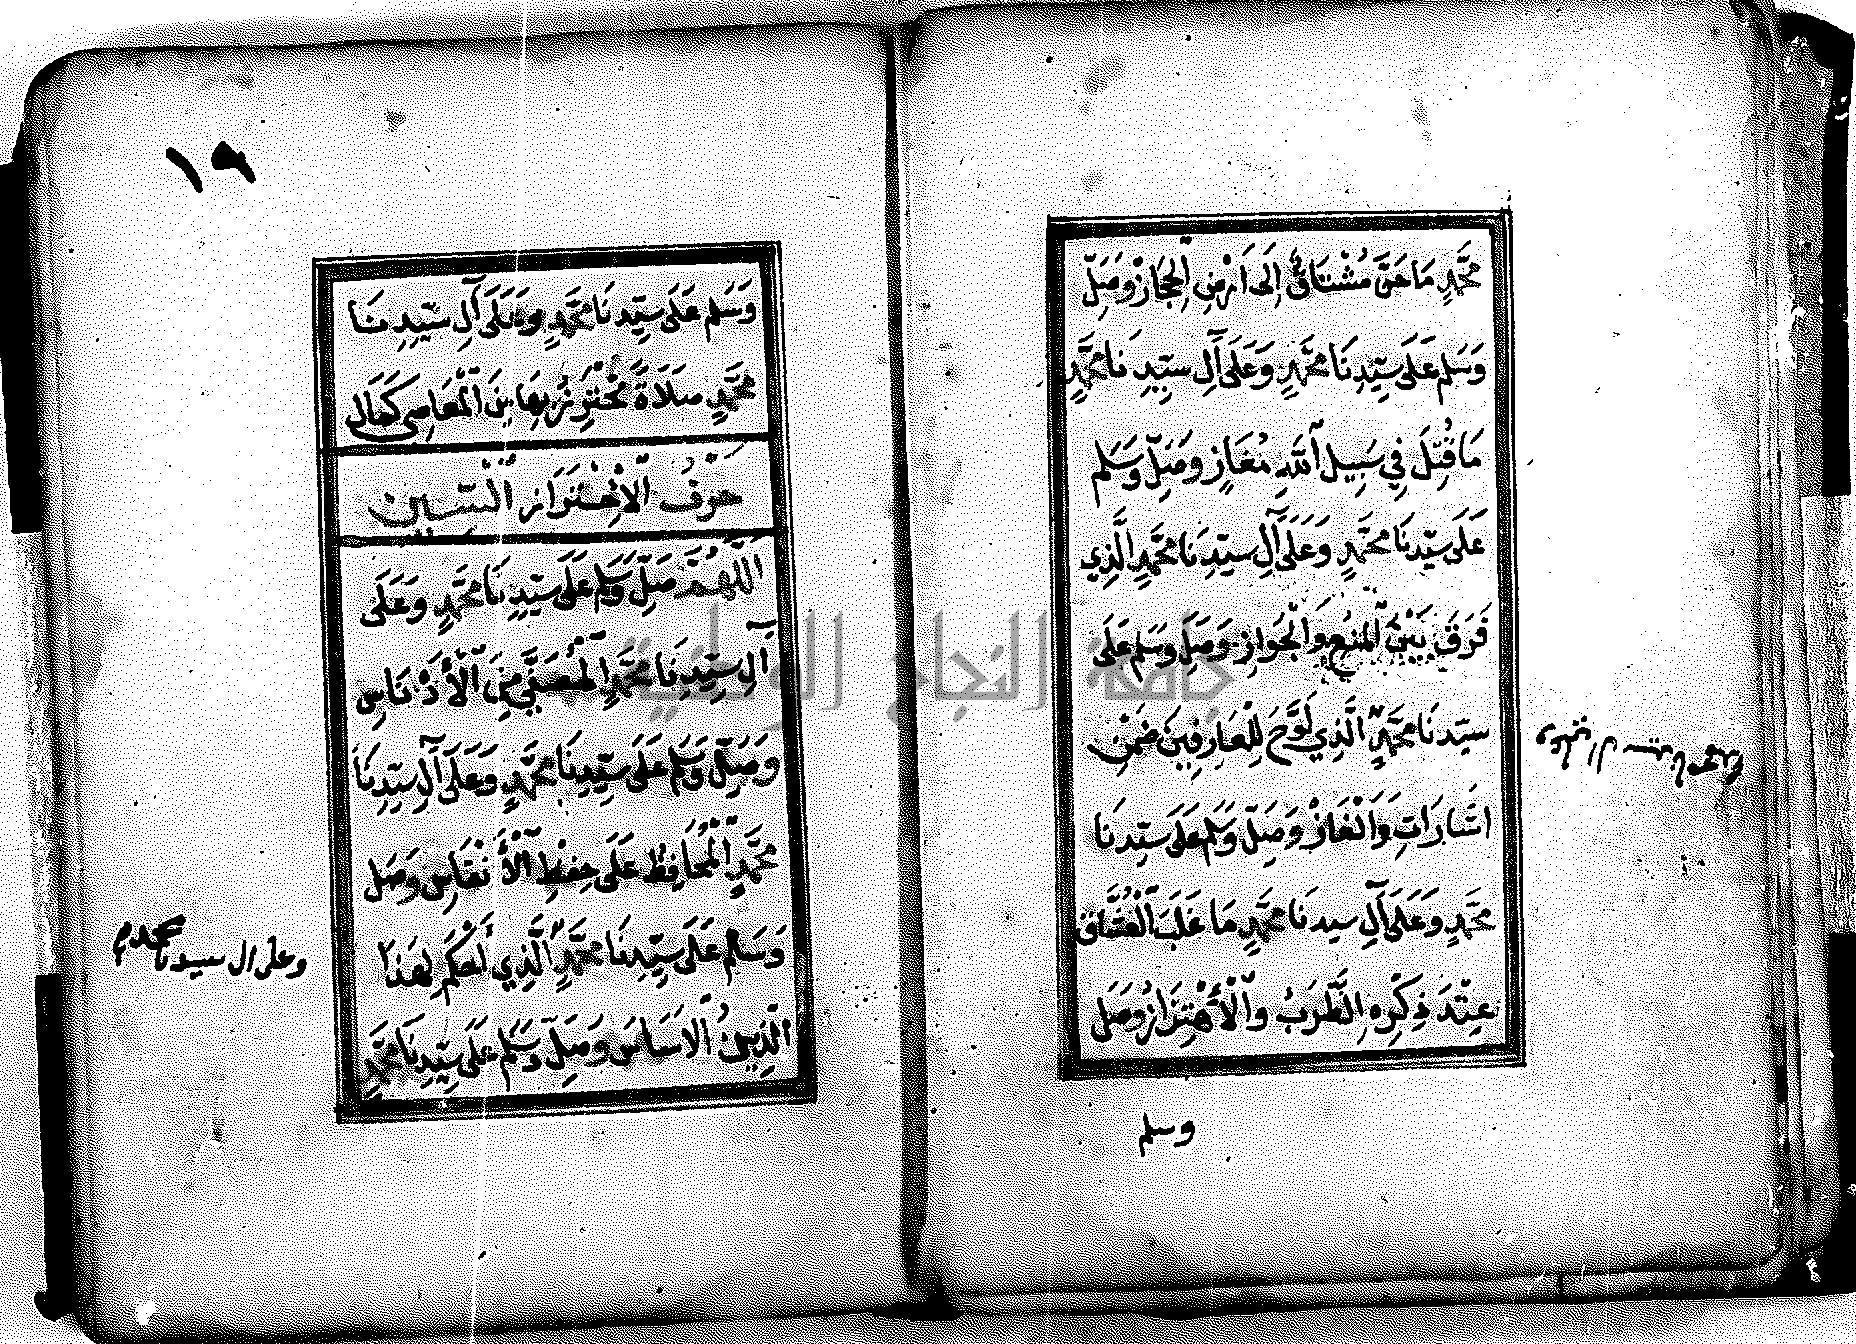 مُحَمَّدٍ مَا حَنَّ مُشْتَاقٌ إِلَى اَرْضِ الْحِجَازْ وَصَلِّ
وَسَلِّم عَلَى سَيِّدِنَا مُحَمَّدٍ وَعَلَى آلِ سَيِّدِنَا مُحَمَّدٍ
مَا قُتِلَ فِي سَبِيلِ اللَّهِ مُغَازٍ وَصَلِّ وَسَلِّم
عَلَى سَيِّدِنَا مُحَمَّدٍ وَعَلَى آلِ سَيِّدِنَا مُحَمَّدٍ الَّذِي
فَرَقَ بَيْنَ الْمَنْعِ وَالْجَوَازِ وَصَلِّ وَسَلِّم عَلَى
سَيِّدِنَا مُحَمَّدٍ الَّذِي لَوَّحَ لِلْعَارِفِينَ ضِمْنَ
اشَارَاتٍ وَالْغَازْ وَصَلِّ وَسَلِّم عَلَى سَيِّدِنَا
مُحَمَّدٍ وَعَلَى آلِ سيدِنَا مُحَمَّدٍ مَا غَلَبَ الْعُشَّاقَ
عِنْدَ ذِكْرِهِ الطَّرَبُ وَالْأَهْتِزَازْ وَصَلِّ
وعلى ال سيدنا محمد
وسلم
١٩
وَسَلِّم عَلَى سَيِّدِنَا مُحَمَّدٍ وَعَلَى آلِ سَيِّدِنَا
مُحَمَّدٍ صَلَاةً نَحْتَرِزُ بِهَا مِنَ الْمَعَاصِي كَمَالَ
حَرْفُ السِّين
اللَّهُمَّ صَلِّ وَسَلِّم عَلَى سَيِّدِنَا مُحَمَّدٍ وَعَلَى
آلِ سَيِّدِنَا مُحَمَّدٍ الْمُصَفَّى مِنَ الْأَدْنَاسِ
وَصَلِّ وَسَلِّم عَلَى سَيِّدِنَا مُحَمَّدٍ وَعَلَى آلِ سَيِّدِنَا
مُحَمَّدٍ الْمُحَافِظِ عَلَى حِفْظِ الْأَنْفَاسِ وَصَلِّ
وَسَلِّم عَلَى سَيِّدِنَا مُحَمَّدٍ الَّذِي أَحْكَمَ لِهَذَا
الدِّينِ الْاَسَاسَ وَصَلِّ وَسَلِّم عَلَى سَيِّدِنَا مُحَمَّدٍ
وعلى ال سيدنا محمد
جامعة النجاح الوطنية